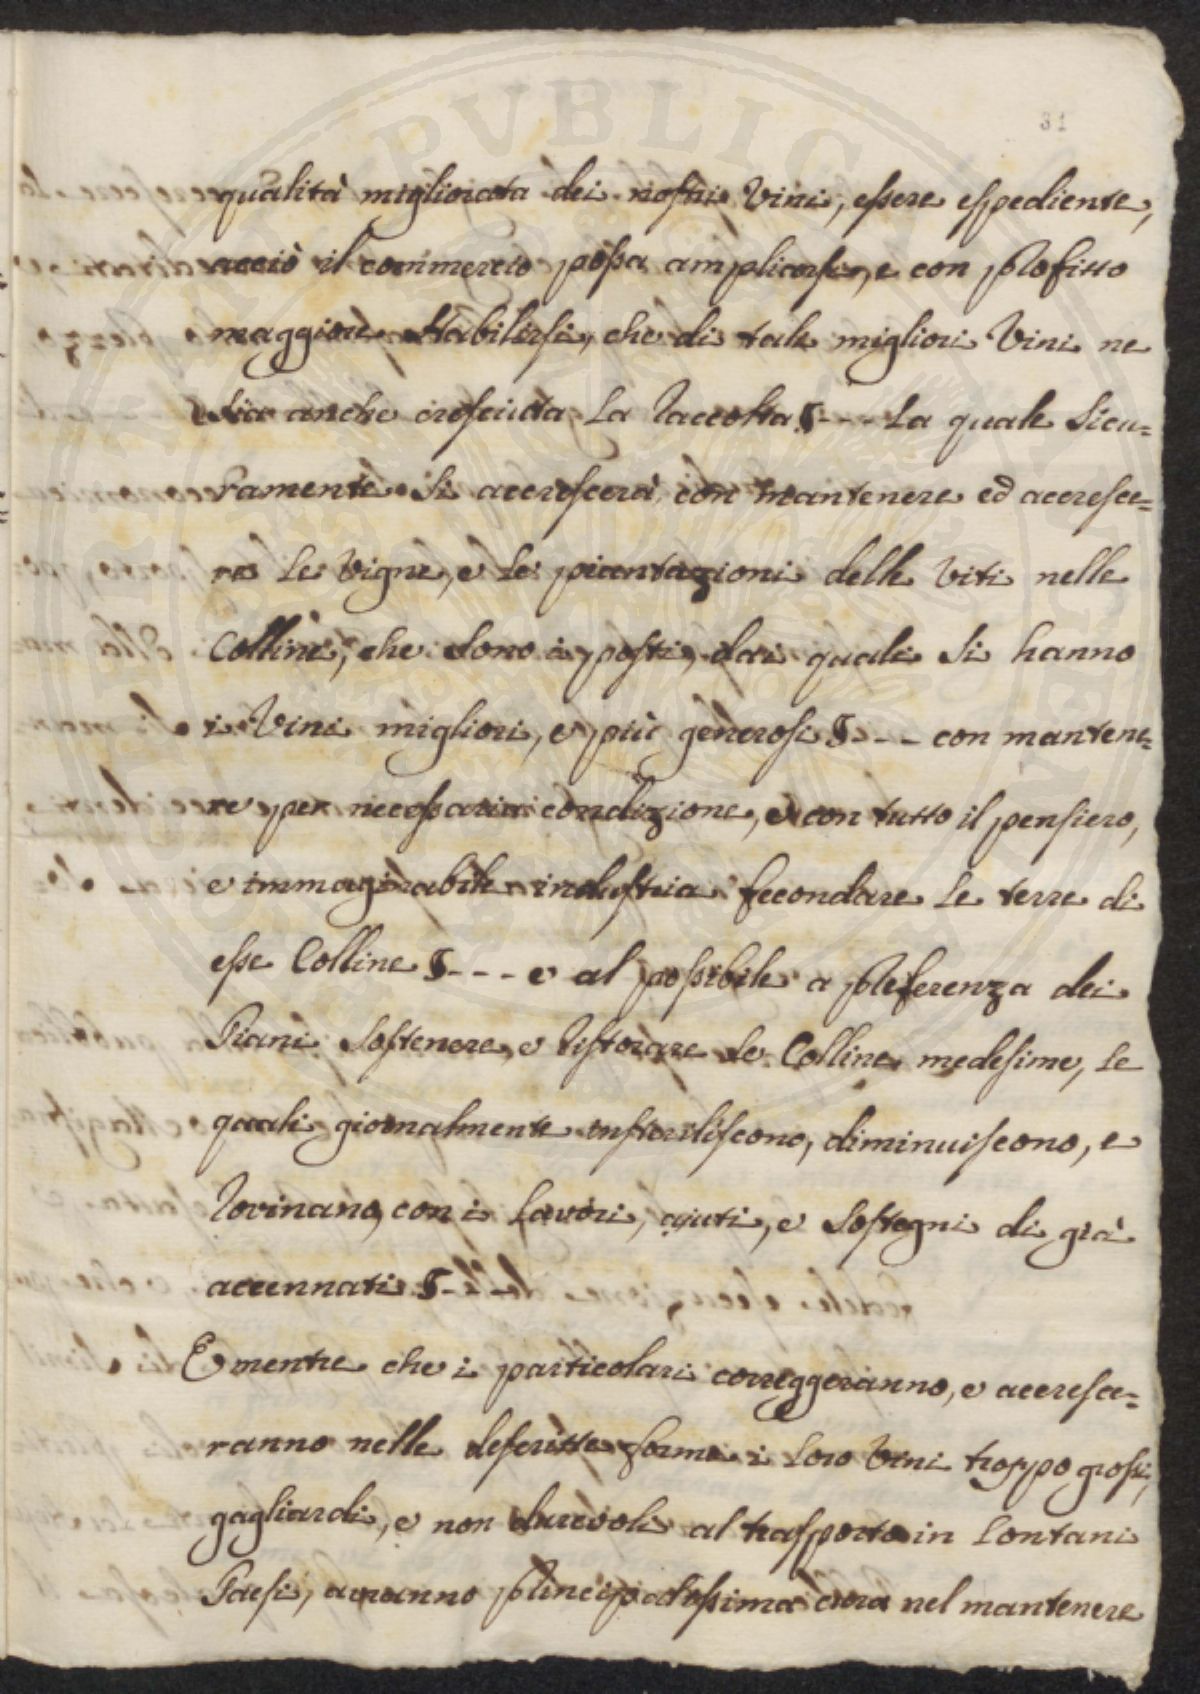 31
qualità migliorata dei nostri Vini, essere espediente,
acciò il commercio possa amplicarsi, e con profitto
maggiore stabilirsi, che di tali migliori Vini ne
sia anche cresciuta la raccolta §--- La quale sicu=
ramente si accrescerà con mantenere ed accresce=
re le Vigne, e le piantazioni delle Viti nelle
Colline, che sono i posti, dai quali si hanno
i Vini migliori, e più generosi §--- con mantene=
re per necessaria condizione, e con tutto il pensiero,
e immaginabile industria fecondare le terre di
esse Colline §--- e al possibile a preferenza dei
Piani sostenere, e ristorare le Colline medesime, le
quali giornalmente insteriliscono, diminuiscono, e
rovinano, con i lavori, ajuti, e sostegni di già
accennati §---
E mentre che i particolari correggeranno, e accresce=
ranno nelle descritte forme i loro Vini troppo grossi,
gagliardi, e non durevoli al trasporto in lontani
Paesi, avranno principalissima cura nel mantenere